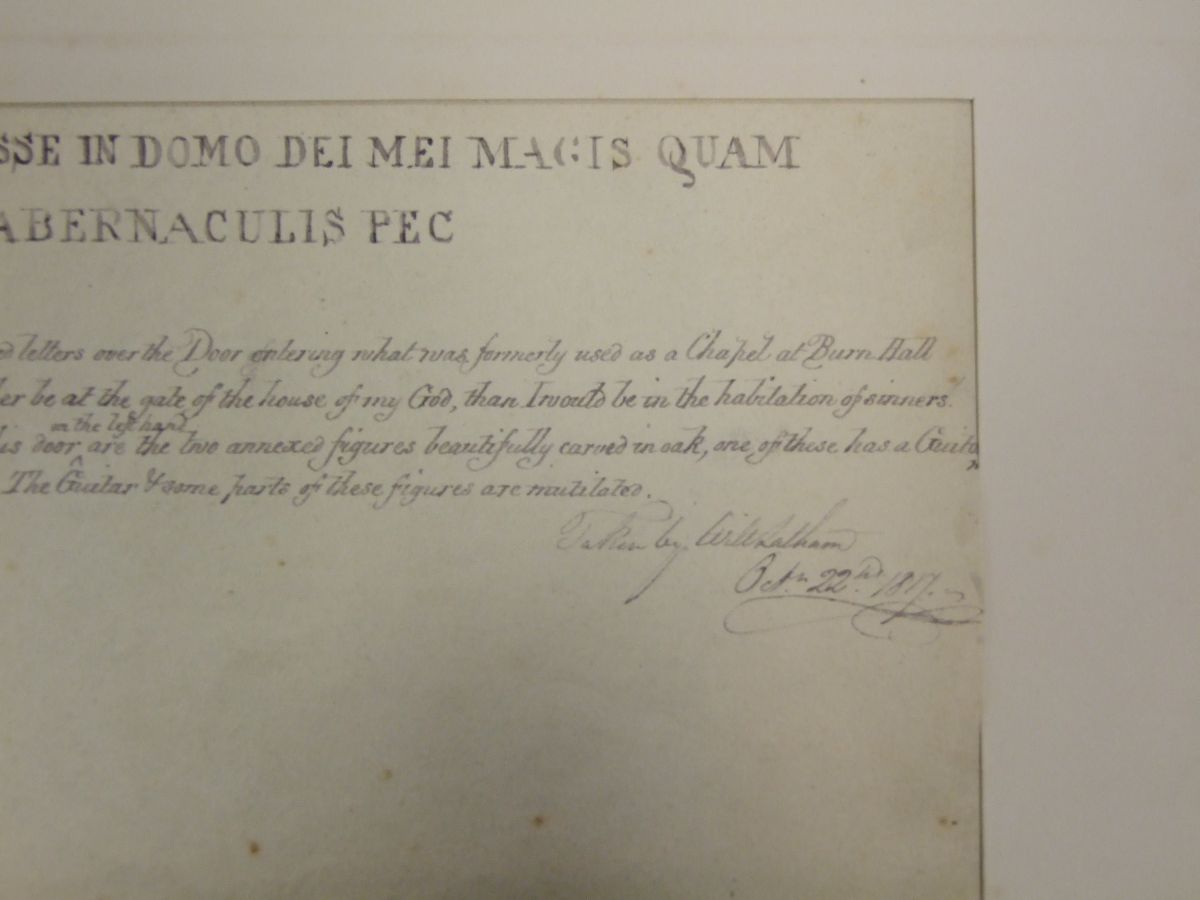 SSE IN DOMO DEI MEI MAGIS QUAM
ABERNACULIS PEC
ed letters over the Door entering what was formerly used as a Chapel at Burn Hall
er be at the gate of the house of my God, than I would be in the habitation of sinners.
on the left hand
is door ^ are the two annexed figures beautifully carved in oak, one of these has a Guita
r
The Guitar & some parts of these figures are mutilated.
Taken by Will Latham
Octr. 22nd. 1817.